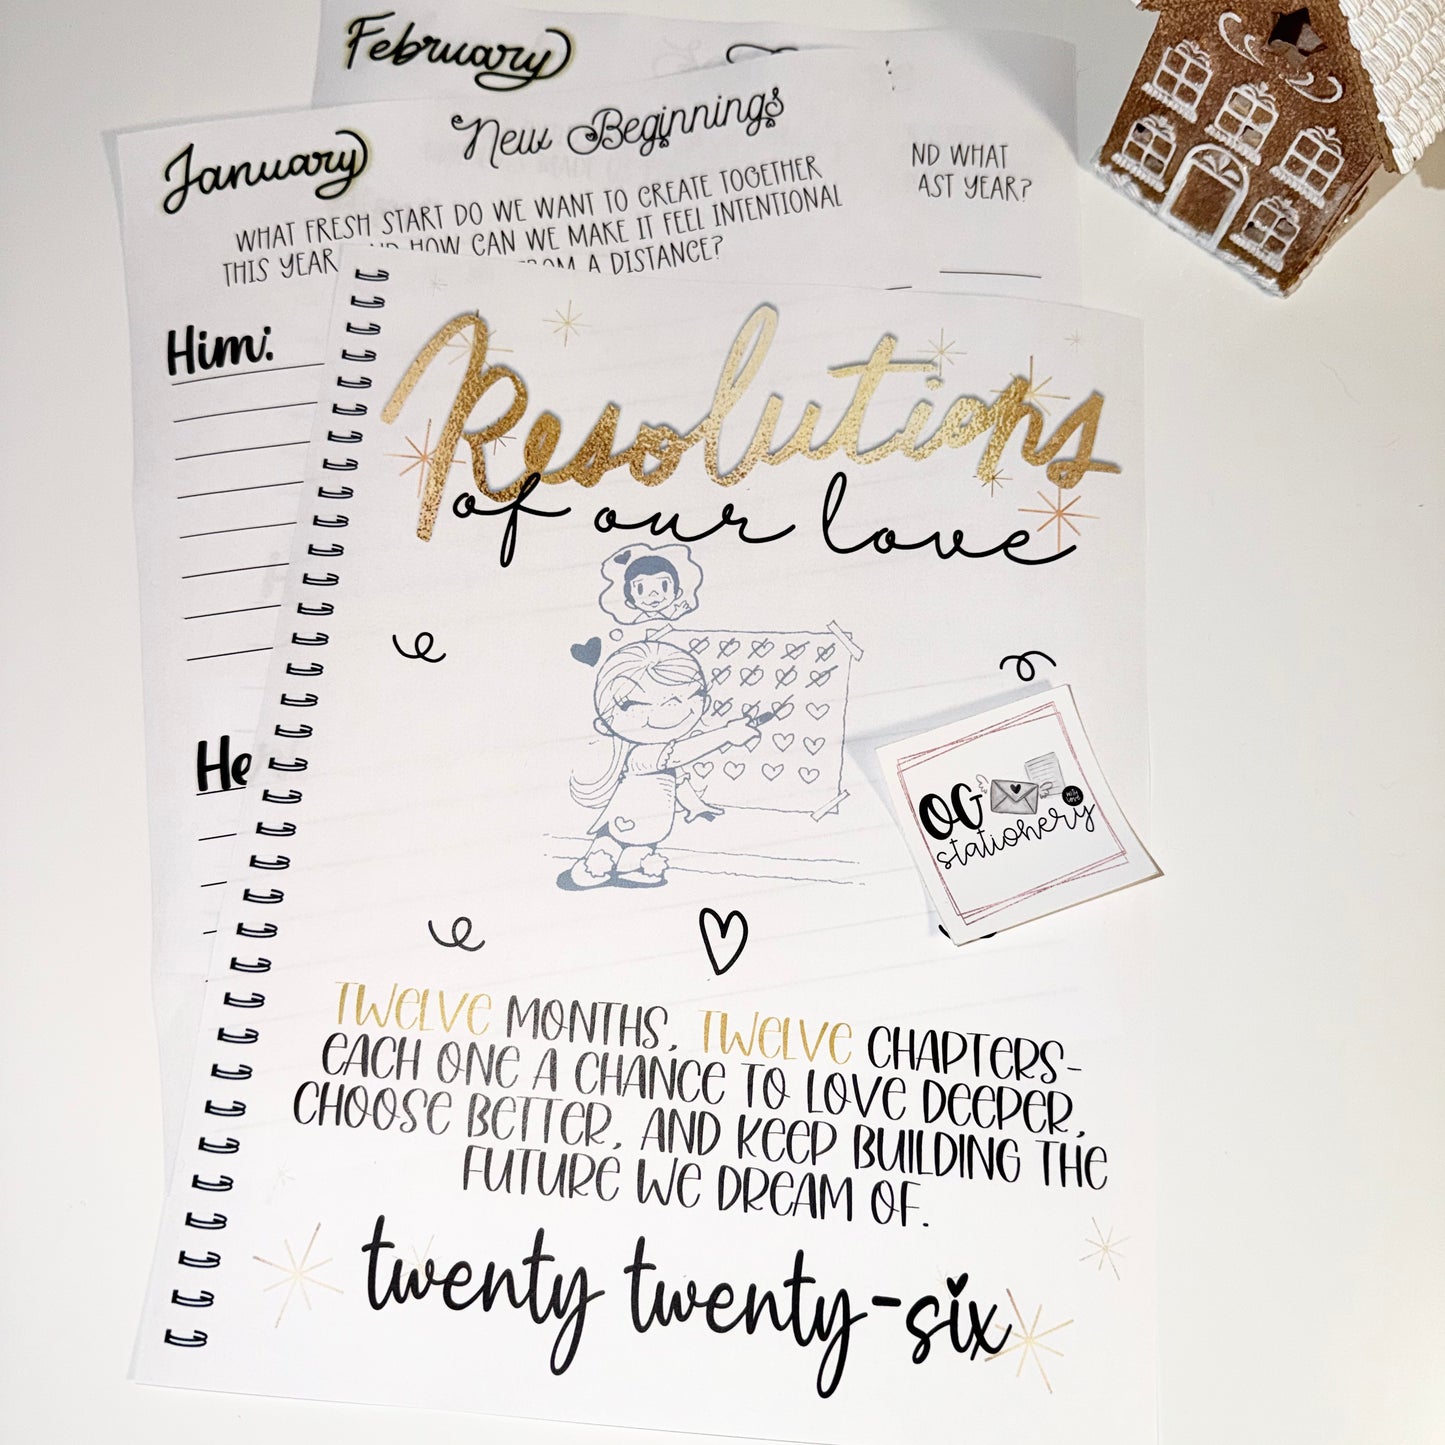 February
ND WHAT
AST YEAR?
January
New Beginnings
WHAT FRESH START DO WE WANT TO CREATE TOGETHER
THIS YEAR HOW CAN WE MAKE IT FEEL INTENTIONAL
A DISTANCE?
Him:
He
Resolutions
of our love
OG
with love
stationery
TWELVE MONTHS, TWELVE CHAPTERS-
EACH ONE A CHANCE TO LOVE DEEPER,
CHOOSE BETTER, AND KEEP BUILDING THE
FUTURE WE DREAM OF.
twenty twenty-six